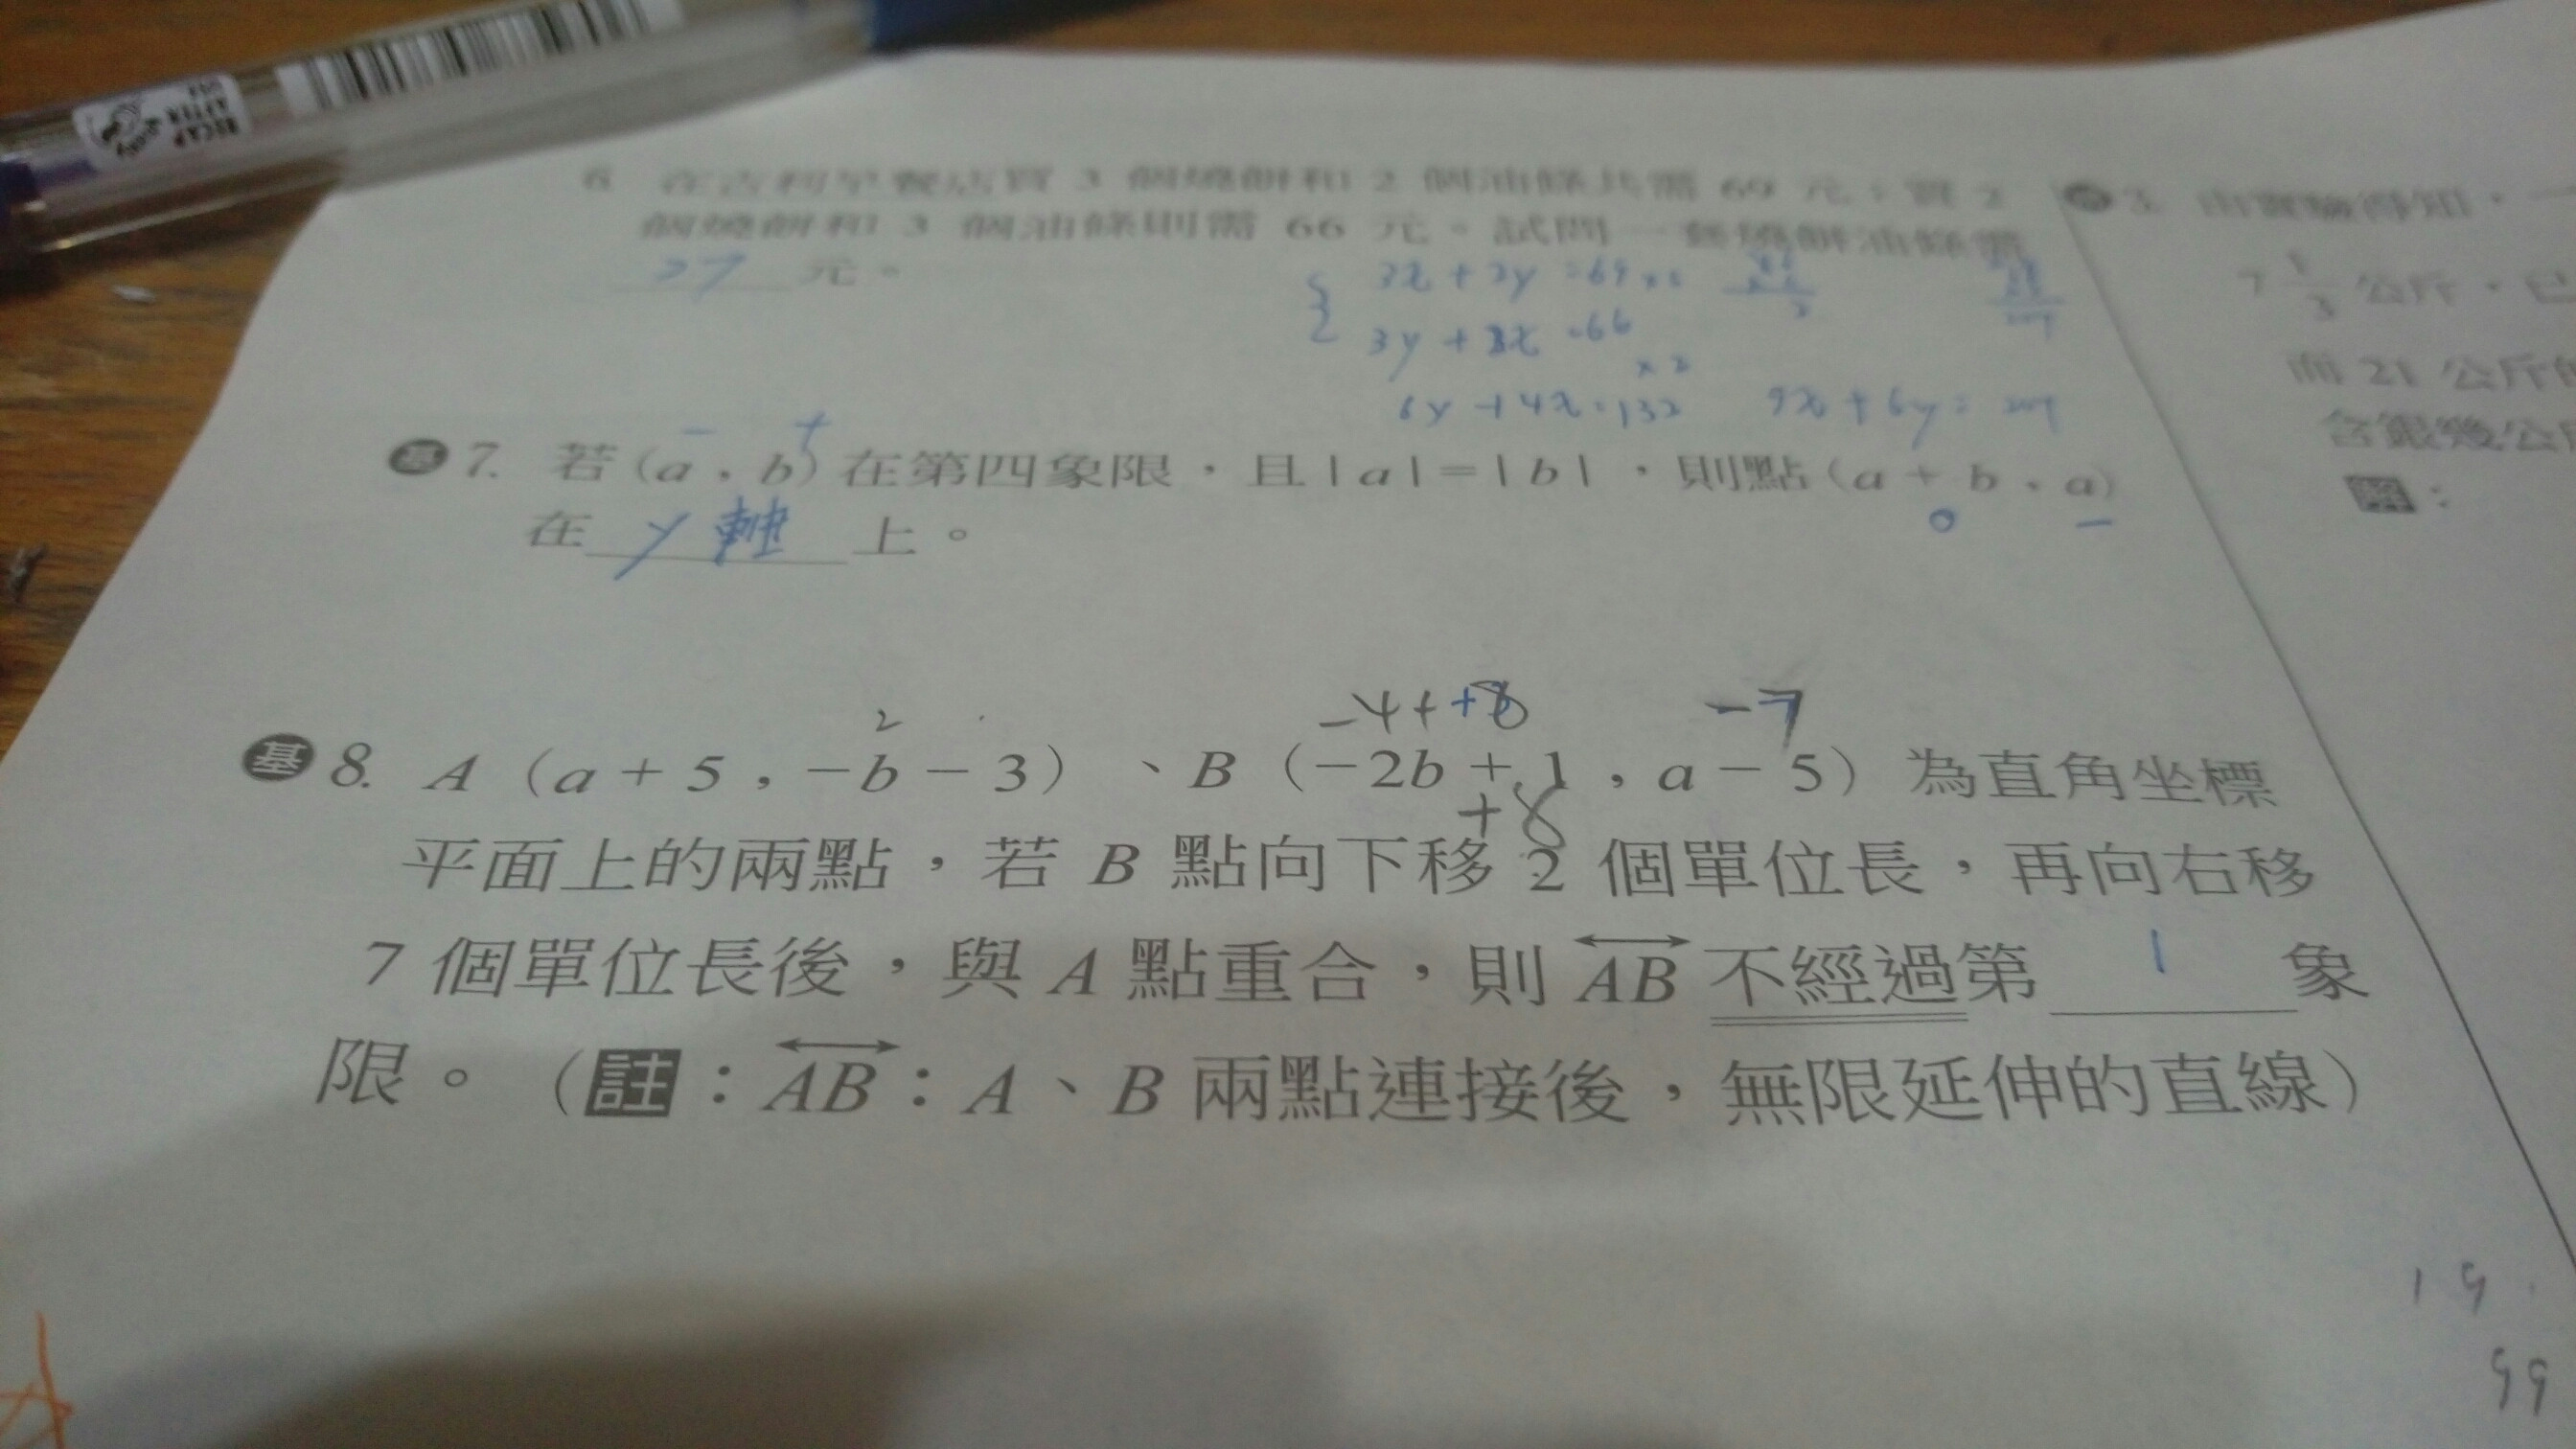 6. 在吉利早餐店買 3 個燒餅和 2 個油條共需 69 元；買 2
個燒餅和 3 個油條則需 66 元。試問一套燒餅油條需
27 元。
3x + 2y = 69
3y + 2x = 66
×2
6y + 4x = 132 9x + 6y = 207
− +
基 7. 若 (a , b) 在第四象限，且 |a| = |b| ，則點 (a + b , a)
0 −
在 y 軸 上。
2 −4+ +8 −7
基 8. A (a + 5 , −b − 3) 、B (−2b + 1 , a − 5) 為直角坐標
+8
平面上的兩點，若 B 點向下移 2 個單位長，再向右移
7 個單位長後，與 A 點重合，則 AB 不經過第 1 象
限。(註：AB：A、B 兩點連接後，無限延伸的直線)
3. 由實驗得知，一
7 1/3 公斤，已
而 21 公斤的
含銀幾公斤
答：